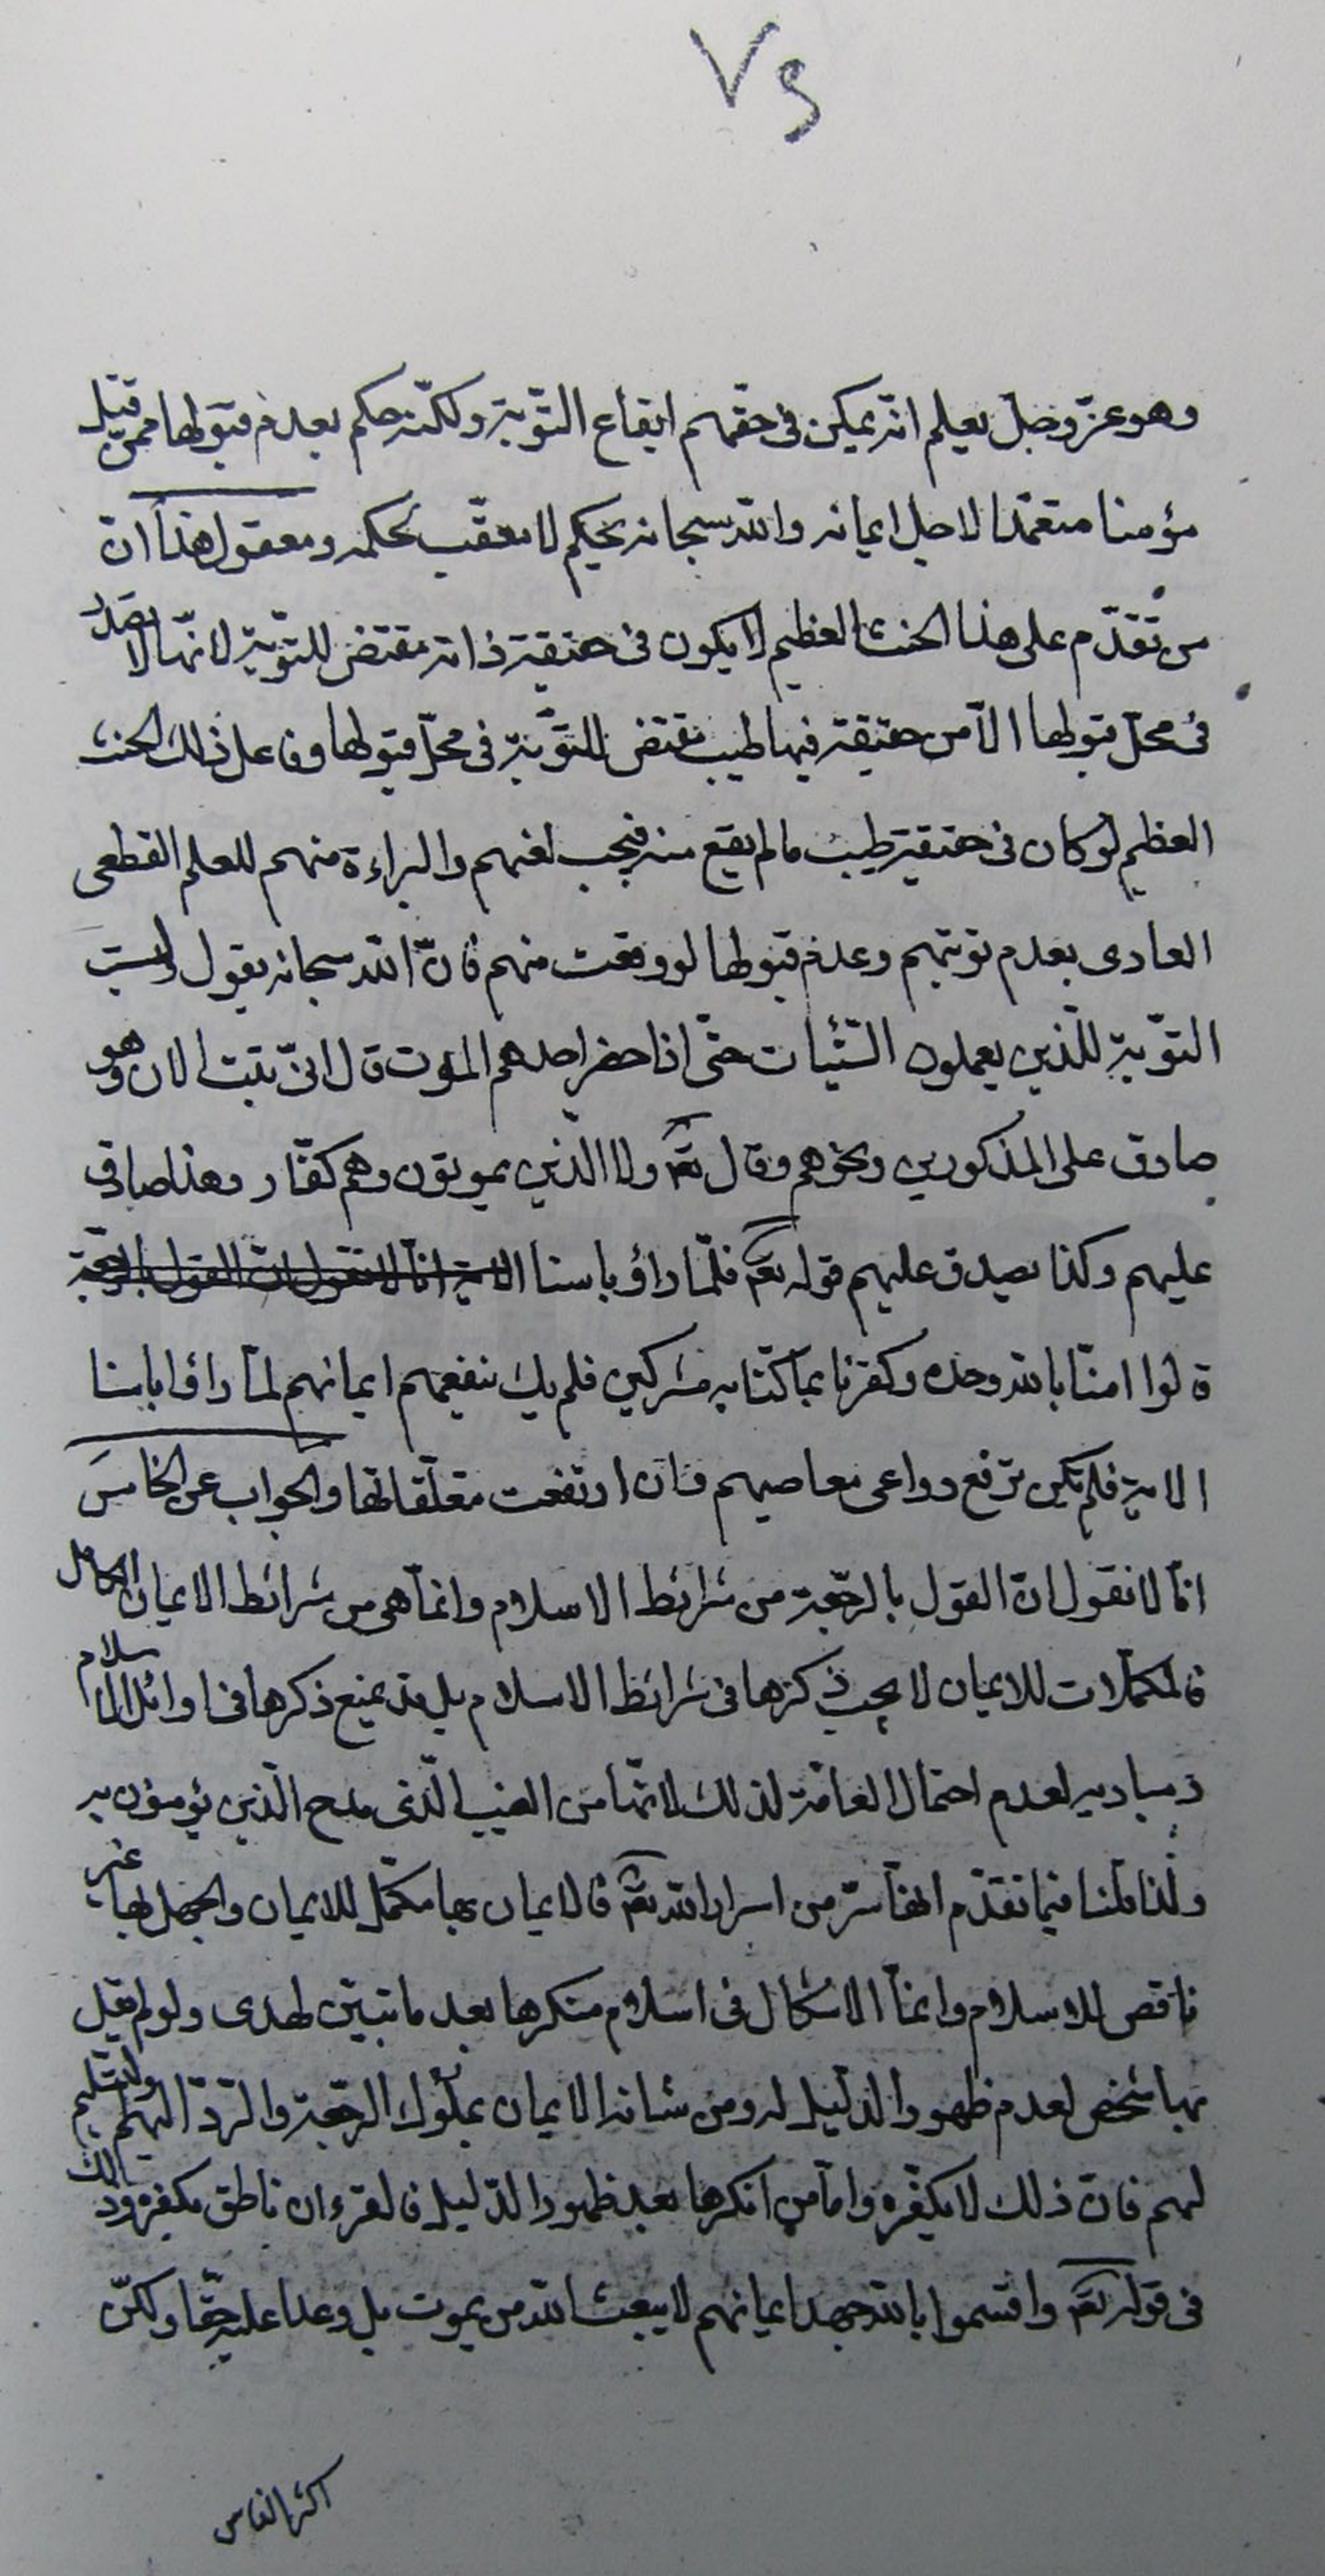 ٧٤
وهو عزّ وجلّ يعلم انّه يمكن فى حقّهم ايقاع التّوبة ولكنّه حكم بعدم قبولها ممّن قتل
مؤمنا متعمّدا لاجل ايمانه والله سبحانه يحكم لا معقّب لحكمه ومعقول هذا انّ
من تقدّم على هذا الحنث العظيم لا يكون فى حقيقة ذاته مقتض للتّوبة لانّها لا تصدر
فى محلّ قبولها الّا من حقيقة فيها طيب مقتض للتّوبة فى محلّ قبولها وفاعل ذلك الحنث
العظيم لو كان فى حقيقته طيب ما لم يقع منه فيجب لعنهم والبراءة منهم للعلم القطعى
العادى بعدم توبتهم وعدم قبولها لو وقعت منهم فانّ الله سبحانه يقول وليست
التّوبة للّذين يعملون السّيّئات حتّى اذا حضر احدهم الموت قال انّى تبت الان وهو
صادق على المذكورين ونحوهم وقال تعالى ولا الّذين يموتون وهم كفّار وهذا صادق
عليهم وكذا يصدق عليهم قوله تعالى فلمّا راؤ باسنا الاية انّا لا نقول انّ القول بالرّجعة
قالوا امنّا بالله وحده وكفرنا بما كنّا به مشركين فلم يك ينفعهم ايمانهم لمّا راؤا باسنا
الاية فلم تكن ترفع دواعى معاصيهم وان ارتفعت متعلّقاتها والجواب عن الخامس
انّا لا نقول انّ القول بالرّجعة من شرائط الاسلام وانّما هى من شرائط الايمان الكامل
فالمكمّلات للايمان لا يجب ذكرها فى شرائط الاسلام بل قد يمنع ذكرها فى اوائل الاسلام
ومباديه لعدم احتمال العامّة لذلك لانّها من الغيب الّذى مدح الّذين يؤمنون به
ولذا قلنا فيما تقدّم انّها سرّ من اسرار الله تعالى فالايمان بها مكمّل للايمان والجهل بها غير
ناقص للاسلام وانّما الاشكال فى اسلام منكرها بعد ما تبيّن لهدى ولو لم يقل
بها شخص لعدم ظهور الدّليل له ومن شانه الايمان بملوك الرّجعة والرّدّ اليهم والتّسليم
لهم فانّ ذلك لا يكفّره وامّا من انكرها بعد ظهور الدّليل فالقرءان ناطق بكفره وذلك
فى قوله تعالى واقسموا بالله جهد ايمانهم لا يبعث الله من يموت بل وعدا عليه حقّا ولكنّ
اكثر النّاس